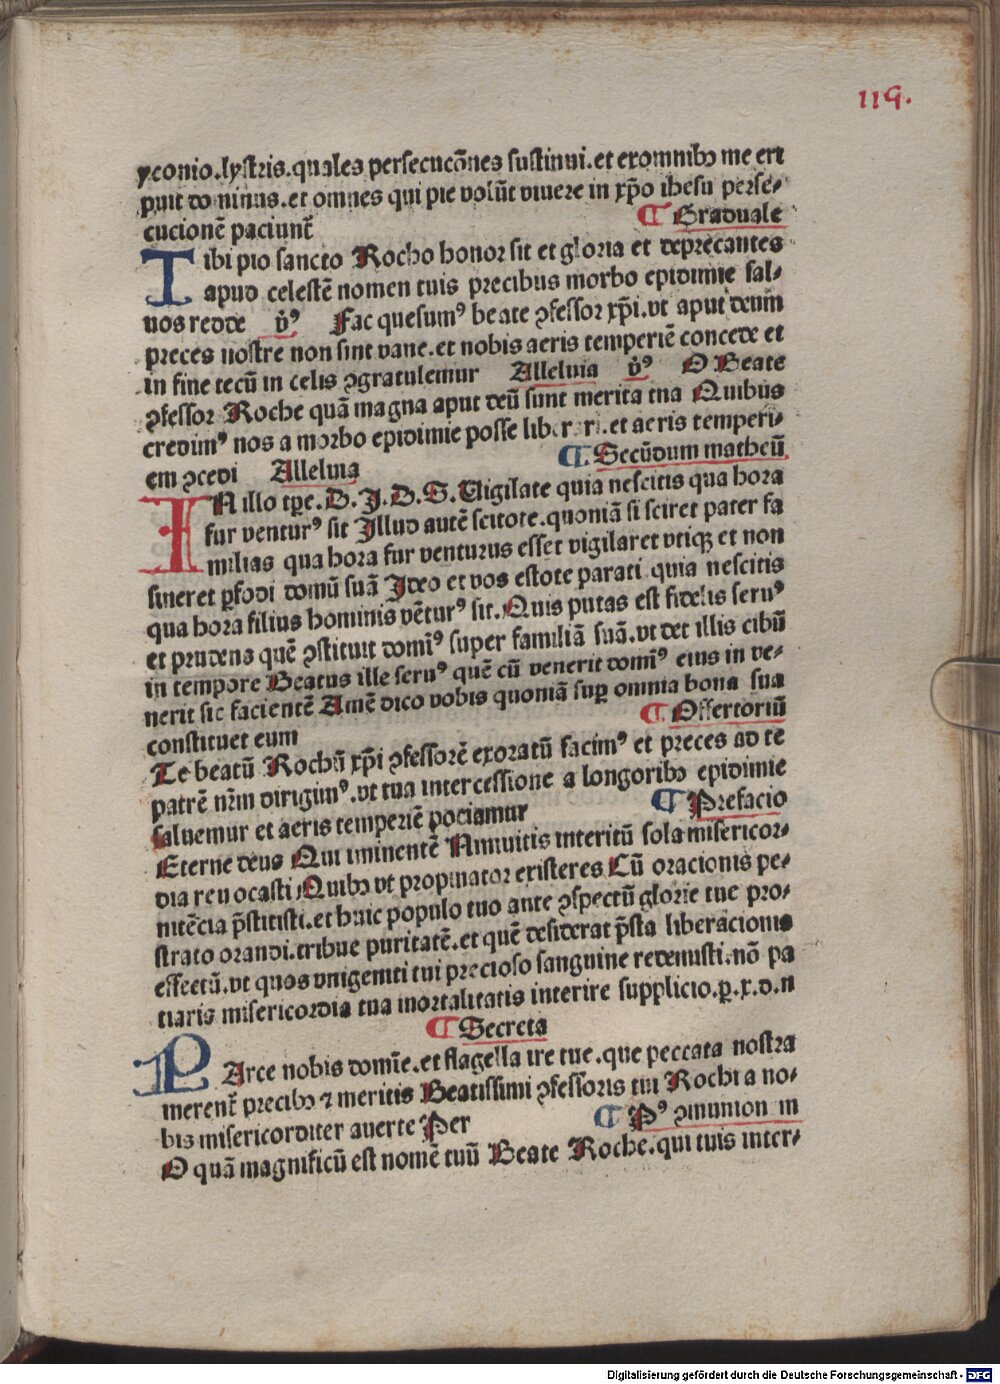 119.
yconio.lystris.quales persecucōnes sustinui.et exomnibꝫ me eri
puit dominus.et omnes qui pie volūt viuere in xp̄o ihesu perse⸗
cucionē paciunt̄
¶ Graduale
Tibi pio sancto Rocho honor sit et gloria et deprecantes
apud celestē nomen tuis precibus morbo epidimie sal⸗
uos redde v̓ꝰ Fac quesumꝰ beate ꝯfessor xp̄i.vt aput deum
preces nostre non sint vane.et nobis aeris temperiē concede et
in fine tecū in celis ꝯgratulemur Alleluia v̓ꝰ O Beate
ꝯfessor Roche quā magna aput deū sunt merita tua Quibus
credimꝰ nos a morbo epidimie posse liberari.et aeris temperi⸗
em ꝯcedi Alleluia
¶ Secūdum matheū
IN illo tꝑe.D.J.D.S.Uigilate quia nescitis qua hora
fur venturꝰ sit Illud autē scitote.quoniā si sciret pater fa
milias qua hora fur venturus esset vigilaret vtiqꝫ et non
sineret ꝑfodi domū suā Ideo et vos estote parati quia nescitis
qua hora filius hominis vēturꝰ sit.Quis putas est fidelis seruꝰ
et prudens quē ꝯstituit domīꝰ super familiā suā.vt det illis cibū
in tempore Beatus ille seruꝰ quē cū venerit domīꝰ eius in ve⸗
nerit sic facientē Amē dico vobis quoniā suꝑ omnia bona sua
constituet eum
¶ Offertoriū
Te beatū Rochū xp̄i ꝯfessorē exoratū facimꝰ et preces ad te
patrē nr̄m dirigimꝰ.vt tua intercessione a langoribꝫ epidimie
saluemur et aeris temperiē pociamur
¶ Prefacio
Eterne deus Qui iminentē Niniuitis interitū sola misericor⸗
dia reuocasti Quibꝫ vt propinator existeres Cū oracionis pe⸗
nitēcia p̄stitisti.et huic populo tuo ante ꝯspectū glorie tue pro⸗
strato orandi.tribue puritatē.et quē desiderat p̄sta liberacionis
effectū.vt quos vnigeniti tui precioso sanguine redemisti.nō pa
tiaris misericordia tua mortalitatis interire supplicio.ꝑ.x.d.n
¶ Secreta
PArce nobis domīe.et flagella ire tue.que peccata nostra
merent̄ precibꝫ ⁊ meritis Beatissimi ꝯfessoris tui Rochi a no⸗
bis misericorditer auerte Per
¶ Pꝰ ꝯmunionem
O quā magnificū est nomē tuū Beate Roche.qui tuis inter⸗
Digitalisierung gefördert durch die Deutsche Forschungsgemeinschaft - DFG